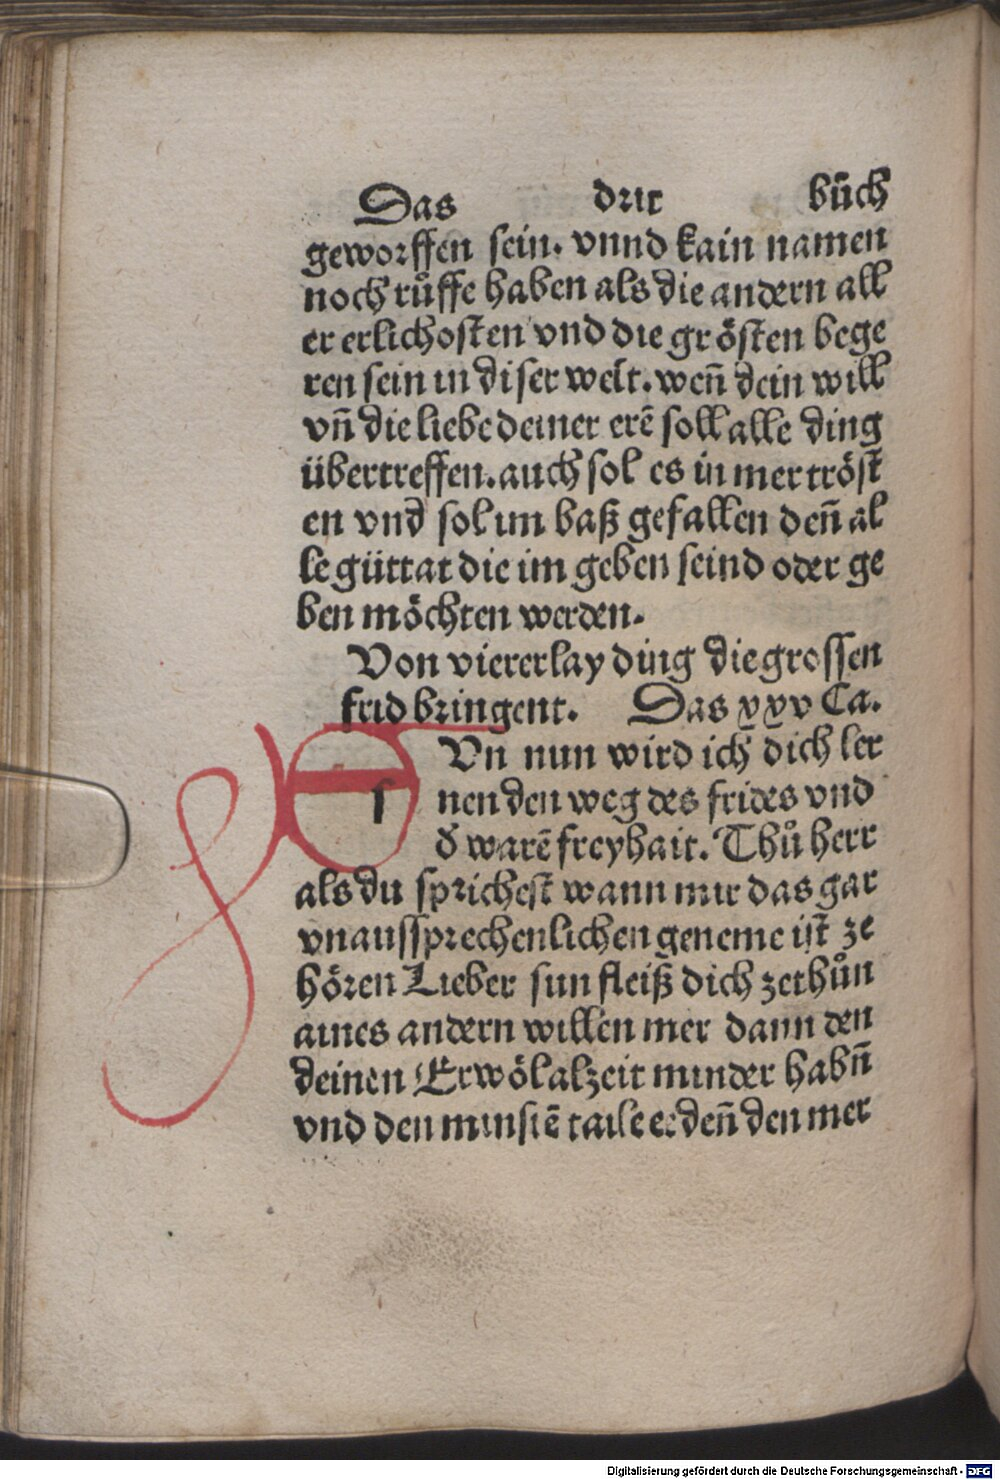 Das drit bůch
geworffen sein. vnnd kain namen
noch rüffe haben als die andern all
er erlichosten vnd die grösten bege
ren sein in diser welt. weñ dein will
vñ die liebe deiner erē soll alle ding
übertreffen. auch sol es in mer tröst
en vnd sol im baß gefallen deñ al
le güttat die im geben seind oder ge
ben möchten werden.
Von viererlay ding die grossen
frid bringent. Das xxv Ca.
Vn nun wird ich dich ler
nen den weg des frides vnd
đ warē freyhait. Thů herr
als du sprichest wann mir das gar
vnaussprechenlichen geneme ist ze
hören Lieber sun fleiß dich zethůn
aines andern willen mer dann den
deinen Erwöl alzeit minder habñ
vnd den minstē taile deñ den mer
Digitalisierung gefördert durch die Deutsche Forschungsgemeinschaft - DFG